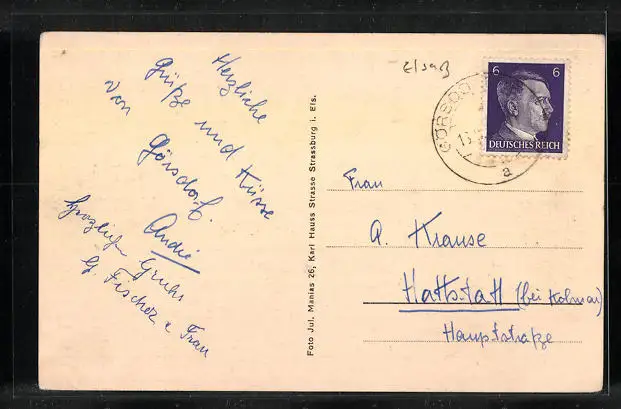 Herzliche
Grüße und Küsse
von Görsdorf.
Andié
Herzlichen Gruß
G. Fischer & Frau
Foto Jul. Manias 26, Karl Hauss Strasse Strassburg i. Els.
Elsaß
6 6
DEUTSCHES REICH
GÖRSDO
a
Frau
A. Krause
Hattstatt (bei Kolmar)
Hauptstraße